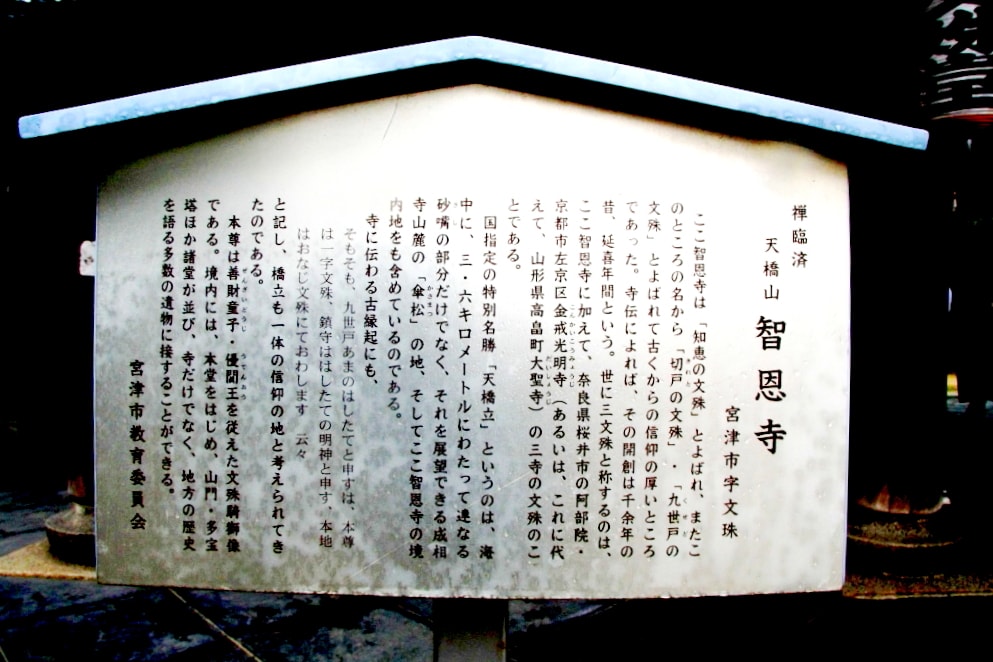 禅臨済
天橋山 智恩寺
宮津市字文珠
ここ智恩寺は「知恵の文殊」とよばれ、またこ
のところの名から「切戸の文殊」・「九世戸の
文殊」とよばれて古くからの信仰の厚いところ
であった。寺伝によれば、その開創は千余年の
昔、延喜年間という。世に三文殊と称するのは、
ここ智恩寺に加えて、奈良県桜井市の阿部院・
京都市左京区金戒光明寺(あるいは、これに代
えて、山形県高畠町大聖寺)の三寺の文殊のこ
とである。
国指定の特別名勝「天橋立」というのは、海
中に、三・六キロメートルにわたって連なる
砂嘴の部分だけでなく、それを展望できる成相
寺山麓の「傘松」の地、そしてここ智恩寺の境
内地をも含めているのである。
寺に伝わる古縁起にも、
そもそも、九世戸あまのはしたてと申すは、本尊
は一字文殊、鎮守ははしたての明神と申す、本地
はおなじ文殊にておわします 云々
と記し、橋立も一体の信仰の地と考えられてき
たのである。
本尊は善財童子・優闐王を従えた文殊騎獅像
である。境内には、本堂をはじめ、山門・多宝
塔ほか諸堂が並び、寺だけでなく、地方の歴史
を語る多数の遺物に接することができる。
宮津市教育委員会